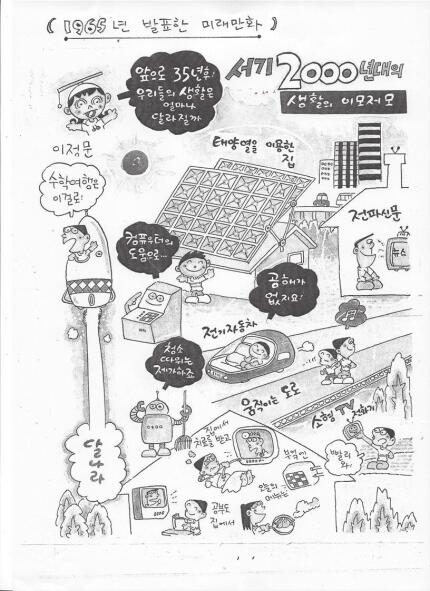 ( 1965년 발표한 미래만화 )
앞으로 35년후!
우리들의 생활은
얼마나
달라질까
이정문
서기 2000년대의
생활의 이모저모
태양열을 이용한
집
수학여행은
이걸로!
전파신문
뉴스
컴퓨우터의
도움으로…
공해가
없지요!
전기자동차
청소
따위는
제가하죠
움직이는 도로
소형 TV 전화기
빨리
와!
달나라
집에서
치료를 받고
부엌엔
오늘의
메뉴는
공부도
집에서